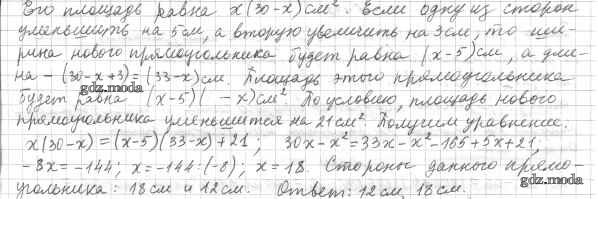 Его площадь равна x(30-x)см². Если одну из сторон
уменьшить на 5 см, а вторую увеличить на 3 см, то ши-
рина нового прямоугольника будет равна (x-5) см, а дли-
на - (30-x+3)=(33-x) см. Площадь этого прямоугольника
gdz.moda
будет равна (x-5)( -x) см². По условию, площадь нового
прямоугольника уменьшится на 21 см². Получим уравнение.
x(30-x)=(x-5)(33-x)+21; 30x-x²=33x-x²-165+5x+21,
gdz.moda
-8x=-144; x=-144:(-8); x=18. Стороны данного прямо-
угольника: 18 см и 12 см. Ответ: 12 см, 18 см.
gdz.moda